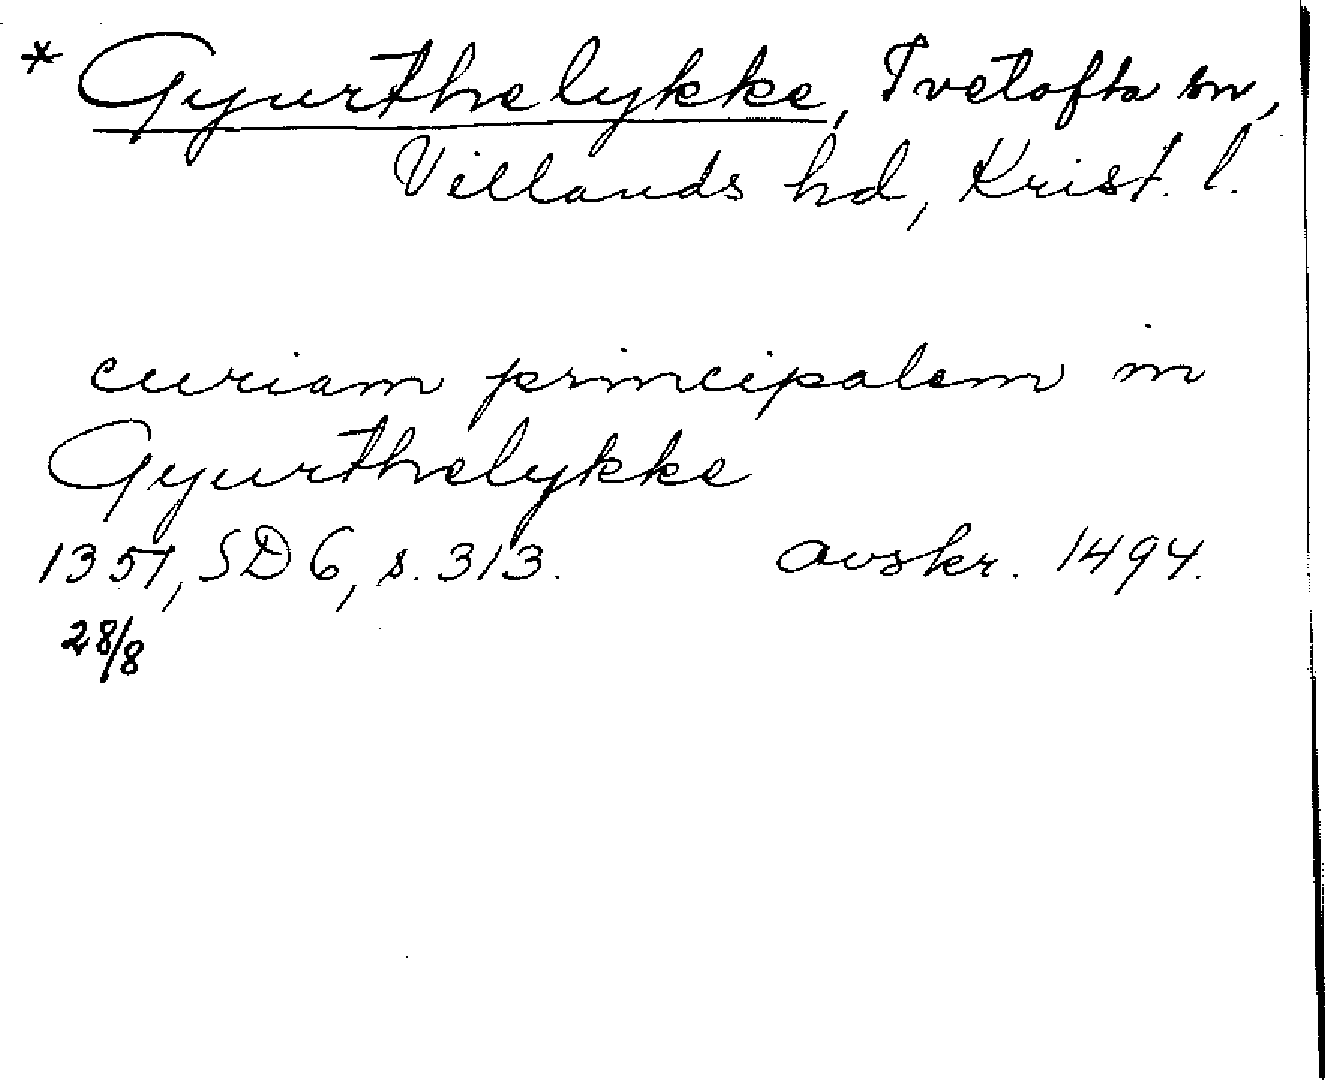 * Gyurthelykke, Tvetofta sn,
Villands hd, Krist. l.
curiam principalem in
Gyurthelykke
1351, SD 6, s. 313. avskr. 1494.
28/8